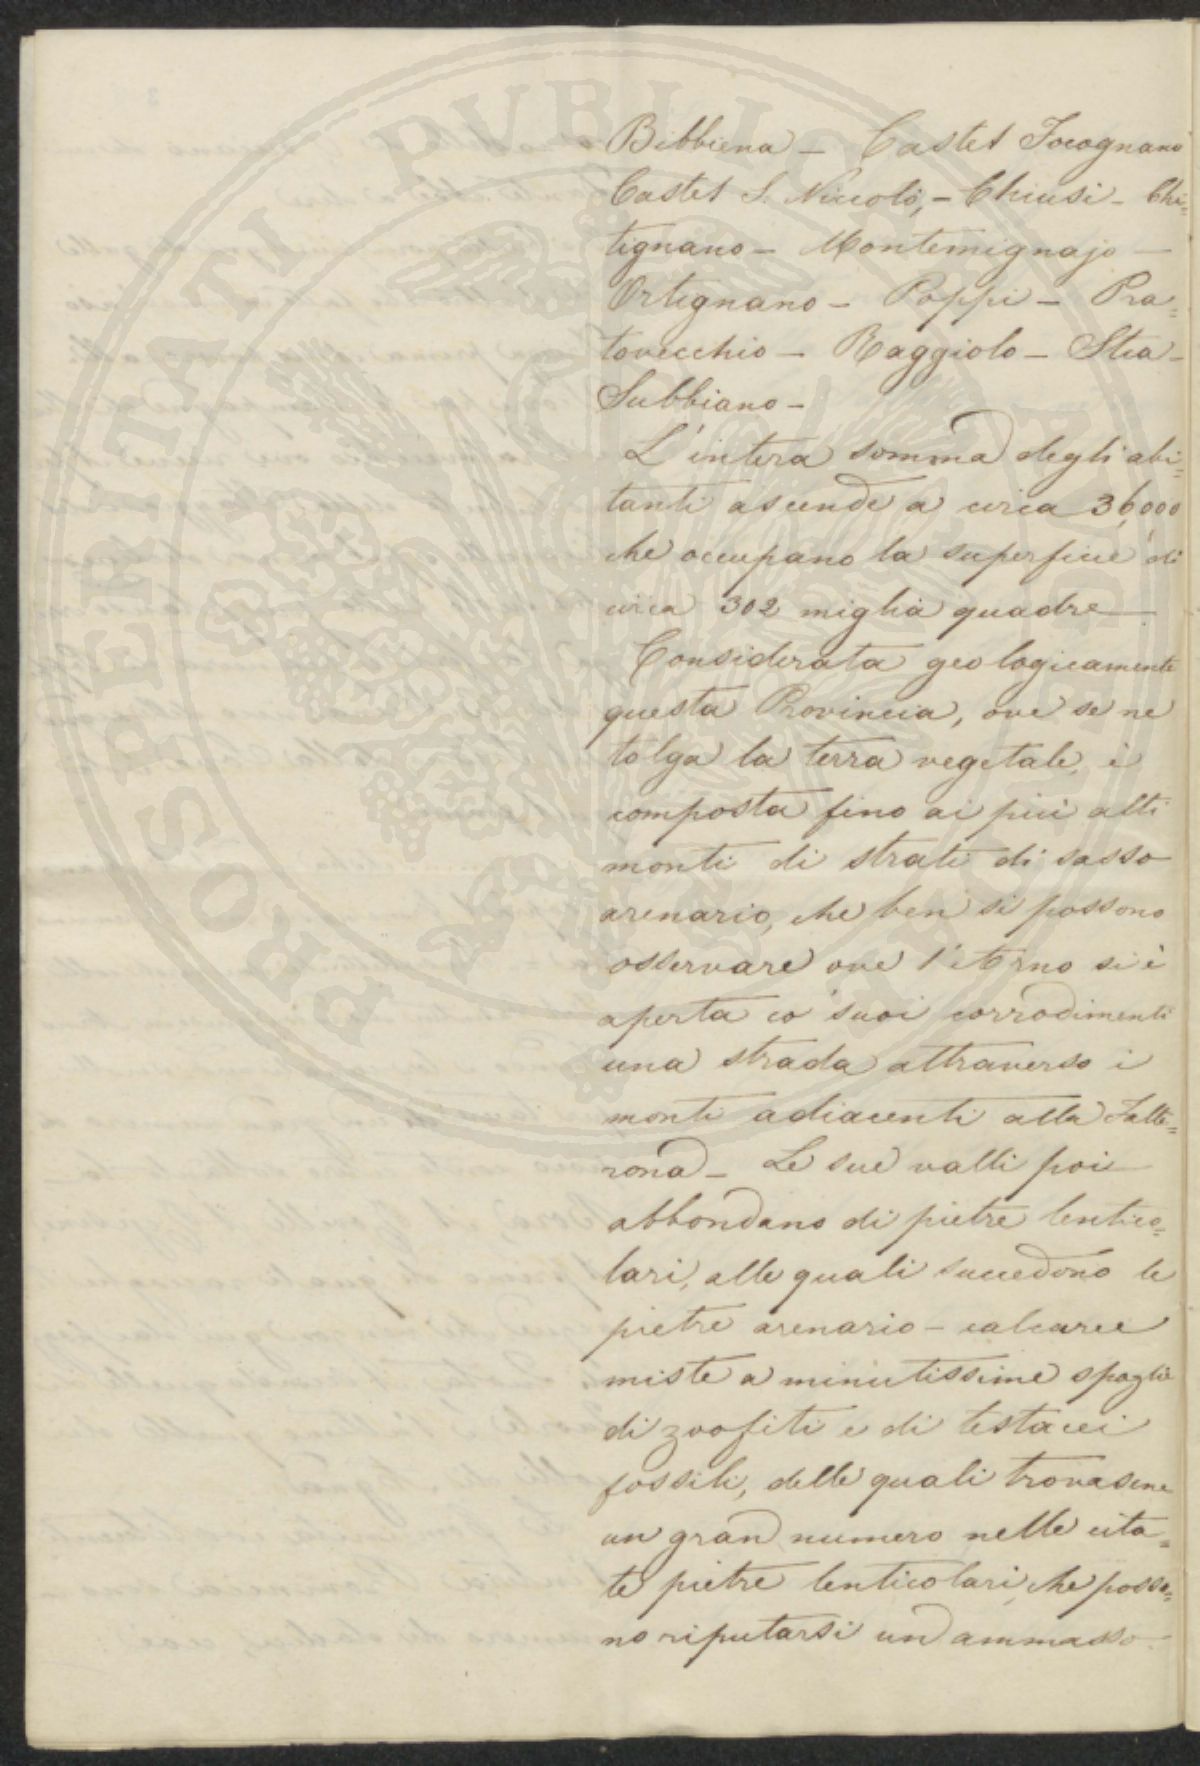 Bibbiena – Castel Focognano
Castel S. Niccolò, – Chiusi – Chi=
tignano – Montemignajo –
Ortignano – Poppi – Pra=
tovecchio – Raggiolo – Stia –
Subbiano –
L'intera somma degli abi=
tanti ascende a circa 36,000
che occupano la superficie di
circa 302 miglia quadre
Considerata geologicamente
questa Provincia, ove se ne
tolga la terra vegetale, è
composta fino ai più alti
monti di strati di sasso
arenario, che ben si possono
osservare ove l'Arno si è
aperta co' suoi corrodimenti
una strada attraverso i
monti adiacenti alla Falte=
rona – Le sue valli poi
abbondano di pietre lentico=
lari, alle quali succedono le
pietre arenario – calcaree
miste a minutissime spoglie
di zoofiti e di testacei
fossili, delle quali trovasene
un gran numero nelle cita=
te pietre lenticolari, che posso=
no riputarsi un ammasso
PROSPERITATI PUBLICAE